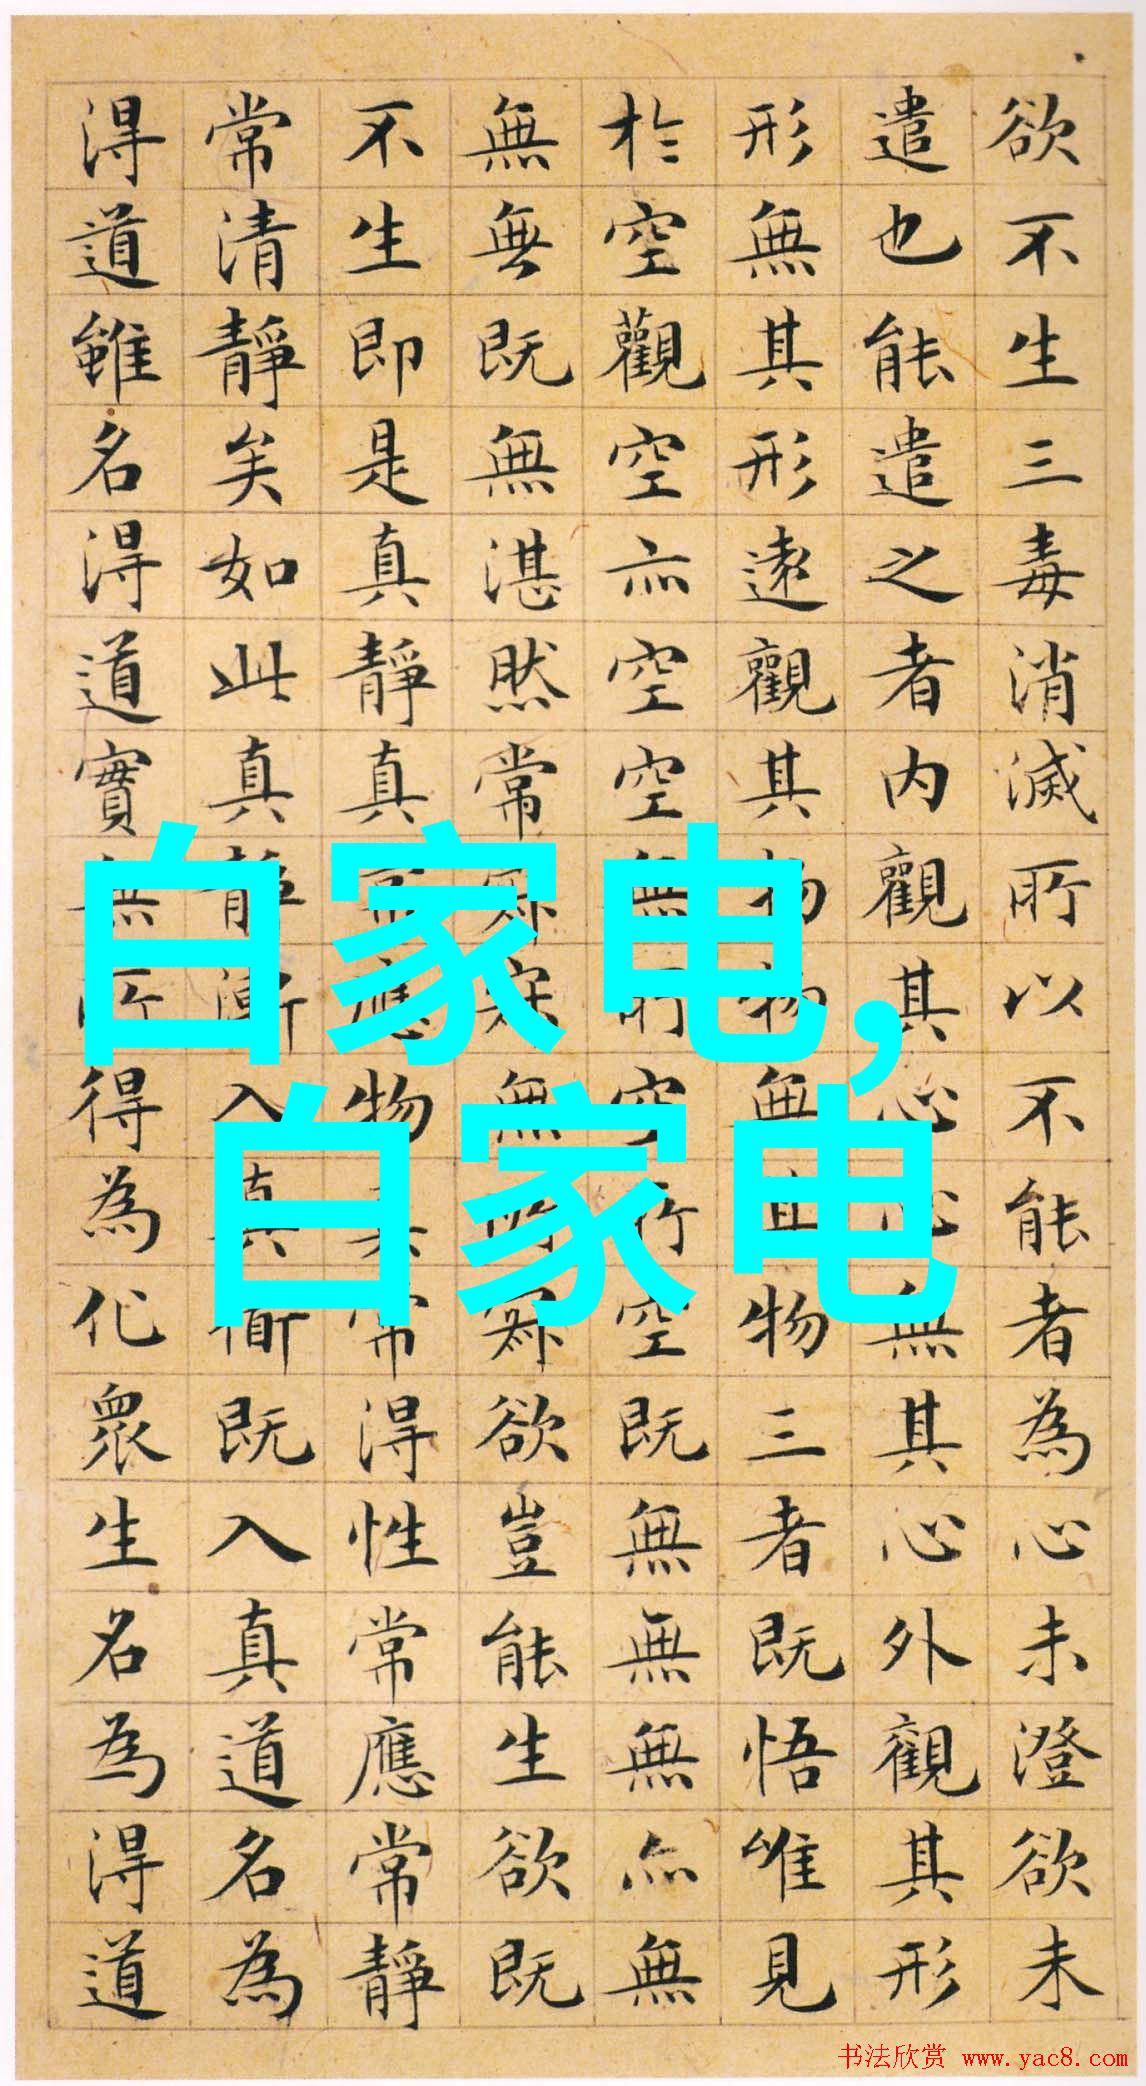 欲不生三毒消滅所以不能者為心未澄欲未
遣也能遣之者内觀其心心無其心外觀其形
形無其形遠觀其物物無其物三者既悟唯見
於空觀空亦空空無所空所空既無無無亦無
無無既無湛然常寂寂無所寂欲豈能生欲既
不生即是真靜真常應物真常得性常應常靜
常清靜矣如此真靜漸入真衜既入真道名為
得道雖名得道實無所得為化眾生名為得道
白家电,
白家电
书法欣赏 www.yac8.com